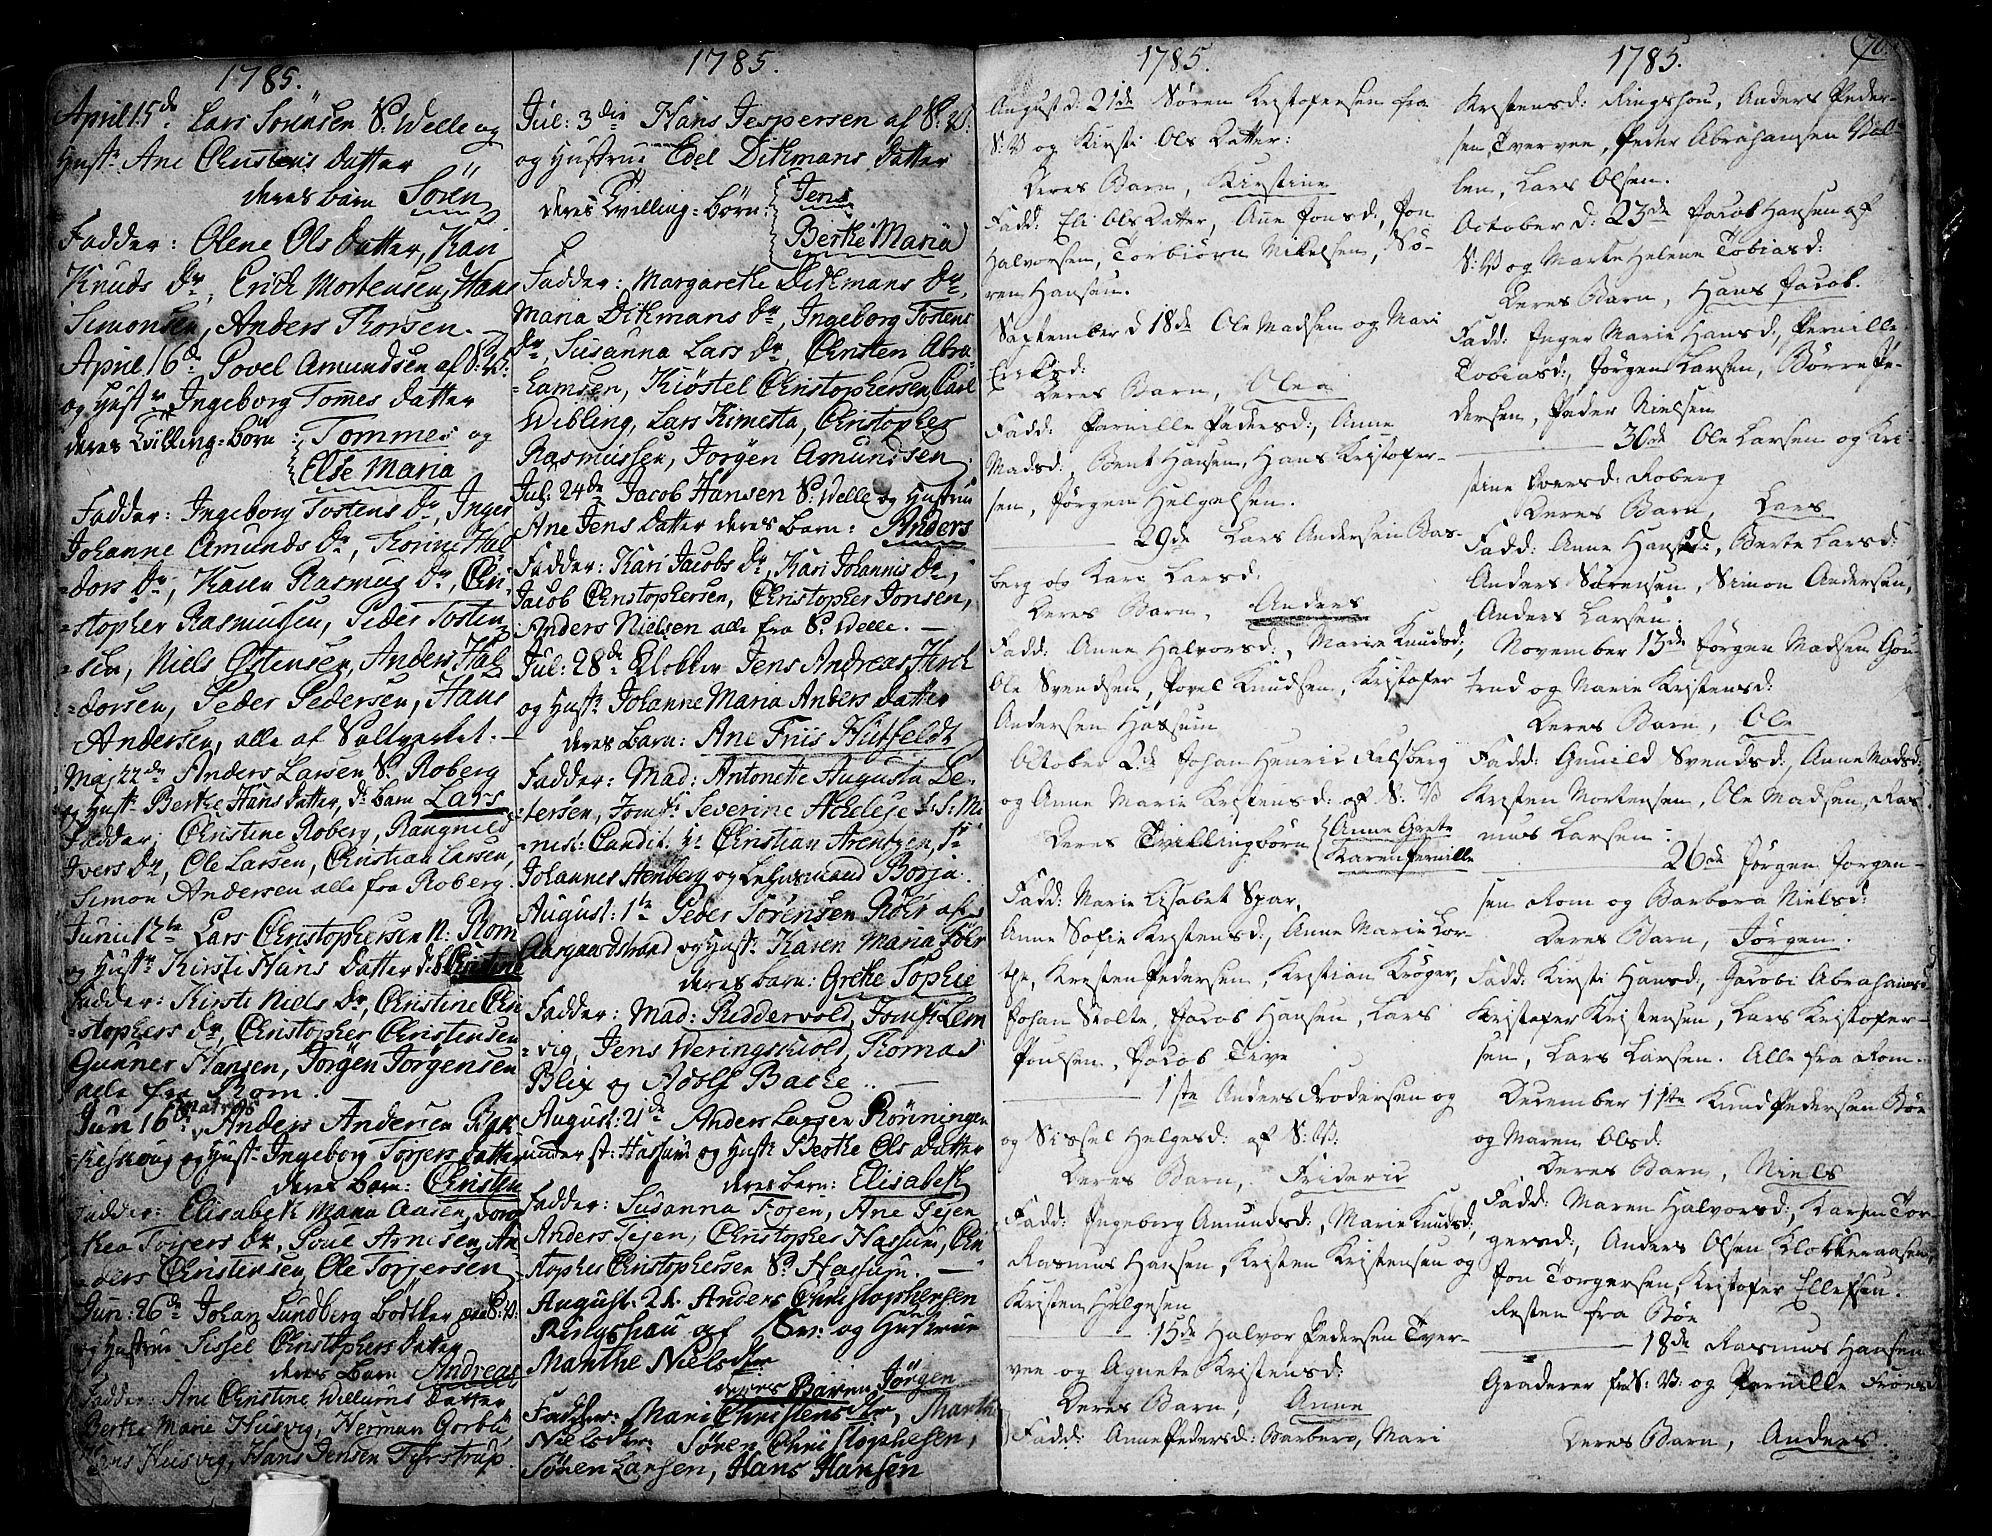 1785.
April 15de Lars Sörensen S: Welle og
Hust: Ane Christens datter
deres barn Sören
Fadder: Olene Ols datter, Kari
Knuds dr, Erich Mortensen, Hans
Simonsen, Anders Thorsen.
April 16de Povel Amundsen af S: W:
og Hustr Ingeborg Tomes datter
deres Tvilling-börn: Tommes og
Else Maria
Fadder: Ingeborg Tostens dr, Inger
Johanne Amunds dr, Thorine Hal
=dors dr, Karen Rasmus dr, Chri
=stopher Rasmussen, Peder Tosten
=sen, Niels Östensen, Anders Hal
=dorsen, Peder Pedersen, Hans
Andersen, alle af Saltverket.
Maj 22de Anders Larsen S: Roberg
og Hust: Berthe Hans datter, ds barn Lars
Fadder: Christine Roberg, Rangnild
Ivers dr, Ole Larsen, Christian Larsen,
Simon Andersen alle fra Roberg.
Junii 12te Lars Christophersen N: Rom
og Hustr Kirsti Hans datter d: b: Christine
Fadder: Kirsti Niels dr, Christine Chri
=stophers dr, Christopher Christensen
Gunner Hansen, Jörgen Jörgensen
alle fra Rom.
Jun 16de Matros Anders Andersen
og Hust: Ingeborg Torjers datter
deres barn: Christen
Fadder: Elisabeth Maria Aasen, Doro
thea Torjers dr, Poul Arnesen, An
=ders Christensen, Ole Torjersen
Jun: 26de Johan Lundberg Bödtker paa S: W:
og Hustrue Sissel Christophers datter
deres barn Andreas
Fadder: Ane Christine Willums datter
Berthe Marie Husvig, Herman Gorbu,
Husvig, Hans Jensen
1785.
Jul: 3die Hans Jespersen af S: W:
og Hustrue Edel Ditmans datter
deres Tvilling-börn: Jens
Berthe Maria
Fadder: Margarethe Ditmans dr,
Maria Ditmans dr, Ingeborg Tostens
dr, Susanna Lars dr, Christen Abra-
=hamsen, Kiöstel Christophersen, Carl
Wibling, Lars Kimesta, Christopher
Rasmussen, Jörgen Amundsen
Jul: 24de Jacob Hansen S: Welle og Hustrue
Ane Jens datter deres barn: Anders
Fadder: Kari Jacobs dr, Kari Johannis dr,
Jacob Christophersen, Christopher Jonsen,
Anders Nielsen alle fra S: Welle.
Jul: 28de Klokker Jens Andreas Hirch
og Hust: Johanne Maria Anders datter
deres barn: Ane Friis Hutfeldt
Fadder: Mad: Antonette Augusta Pe-
=tersen, Jomf: Severine
=nist: Candit. Hr Christian Arentzen, Sr
Johannes Stenberg og Lehnsmand Borja.
August: 1te Peder Törensen Röhr af
Aargaardstrand og Hust: Karen Maria Föhr
deres barn: Grethe Sophie
Fadder: Mad: Riddervold, Jomf: Lem
=vig, Jens Weringskiold, Thomas
Blix og Adolf Bache.
August: 21de Anders Larsen Rönningen
under st: Hassum og Hust: Berthe Ols datter
deres barn: Elisabeth
Fadder: Susanna Fosen, Ane Tejen
Anders Tejen, Christopher Hassum, Chri
stopher Christophersen S: Hassum.
August: 21. Anders Christophersen
Ringshau og Hustrue
Marthe Nielsdtr
deres Baren Jörgen
Fadder: Mari Christensdtr, Marthe
Nielsdtr. Sören Christophesen,
Sören Larsen, Hans Hansen
1785.
August d: 21de Sören Kristofersen fra
S: W og Kirsti Ols datter:
Deres Barn, Kirstine
Fadd: Eli Ols datter, Anne Jonsd:, Jon
Halvorsen, Torbiörn Nikelsen, Sö-
ren Hansen.
September d 18de Ole Madsen og Mari
Eriksd:
Deres Barn, Olea
Fadd: Pernille Pedersd:, Anne
Madsd:, Bent Hansen, Hans Kristofer-
sen, Jörgen Helgesen.
29de Lars Andersen Bas-
berg og Kari Larsd:
Deres Barn, Anders
Fadd: Anne Halvorsd:, Marie Knudsd:,
Ole Svendsen, Povel Knudsen, Kristofer
Andersen Hassum
October 2de Johan Henric Relsberg
og Anne Marie Kristensd: af S: W
Deres Tvillingbörn Anne Grete
Karen Pernille
Fadd: Marie Lisabet Spar,
Anne Sofie Kristensd:, Anne Marie Lor-
the, Kresten Pedersen, Kristian Kröger,
Johan Stolte, Jacob Hansen, Lars
Poulsen, Jacob Tive
1ste Anders Frodersen og
og Sissel Helgesd: af S: W:
Deres Barn, Frideric
Fadd: Ingeborg Amundsd:, Marie Knudsd:,
Rasmus Hansen, Kristen Kristensen og
Kristen Helgesen
15de Halvor Pedersen Tver-
vee og Agnete Kristensd:
Deres Barn, Anne
Fadd: Anne Pedersd: Barberg, Mari
1785.
70.
Kristensd: Ringshou, Anders Peder-
sen, Tvervee, Peder Abrahamsen Vel-
len, Lars Olsen.
October d: 23de Jacob Hansen af
S: W og Marte Helene Tobiasd:
Deres Barn, Hans Jacob.
Fadd: Inger Marie Hansd:, Pernille
Tobiasd:, Jörgen Larsen, Börre Pe-
dersen, Peder Nielsen
30de Ole Larsen og Kri-
stine Iversd: Roberg
Deres Barn, Lars
Fadd: Anne Hansd:, Berte Larsd:
Anders Sörensen, Simon Andersen,
Anders Larsen.
November 13de Jörgen Madsen Gou-
trud og Marie Kristensd:
Deres Barn, Ole
Fadd: Gunild Svendsd:, Anne Madsd:,
Kristen Mortensen, Ole Madsen, Ras
mus Larsen
26de Jörgen Jorgen-
sen Rom og Barbara Nielsd:
Deres Barn, Jörgen.
Fadd: Kirsti Hansd:, Jacobi Abrahamsd:
Kristofer Kristensen, Lars Kristofer-
sen, Lars Larsen. Alle fra Rom.
December 11te Knud Pedersen Böe
og Maren Olsd:
Deres Barn, Niels
Fadd: Maren Halvorsd:, Karen Tor-
gersd:, Anders Olsen Klokkeraasen,
Jon Torgersen, Kristofer Ellefsen.
Resten fra Böe
18de Rasmus Hansen
Graderer fra S: W: og Pernille
Deres Barn, Anders.